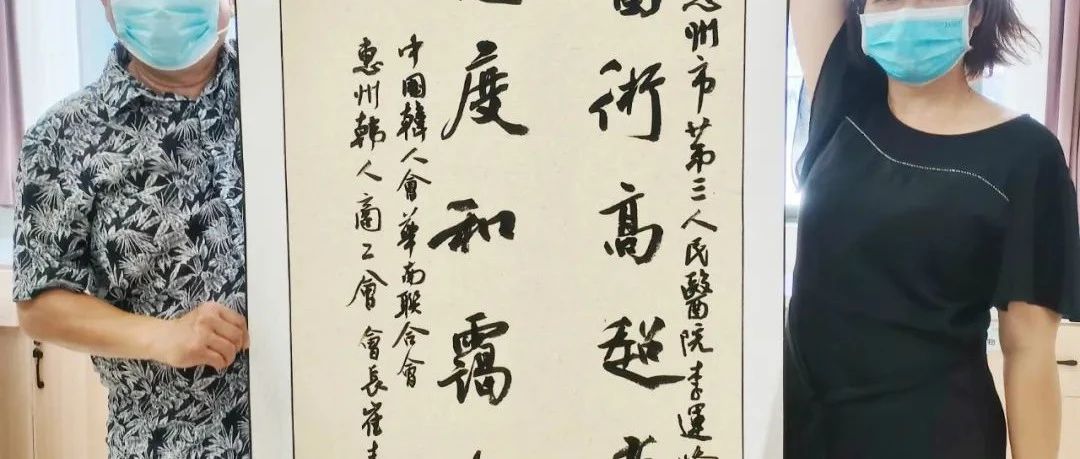 州市第三人民醫院李運
術高超
度和靄
中國韓人會華南聯合會
惠州韩人商工會 會長崔